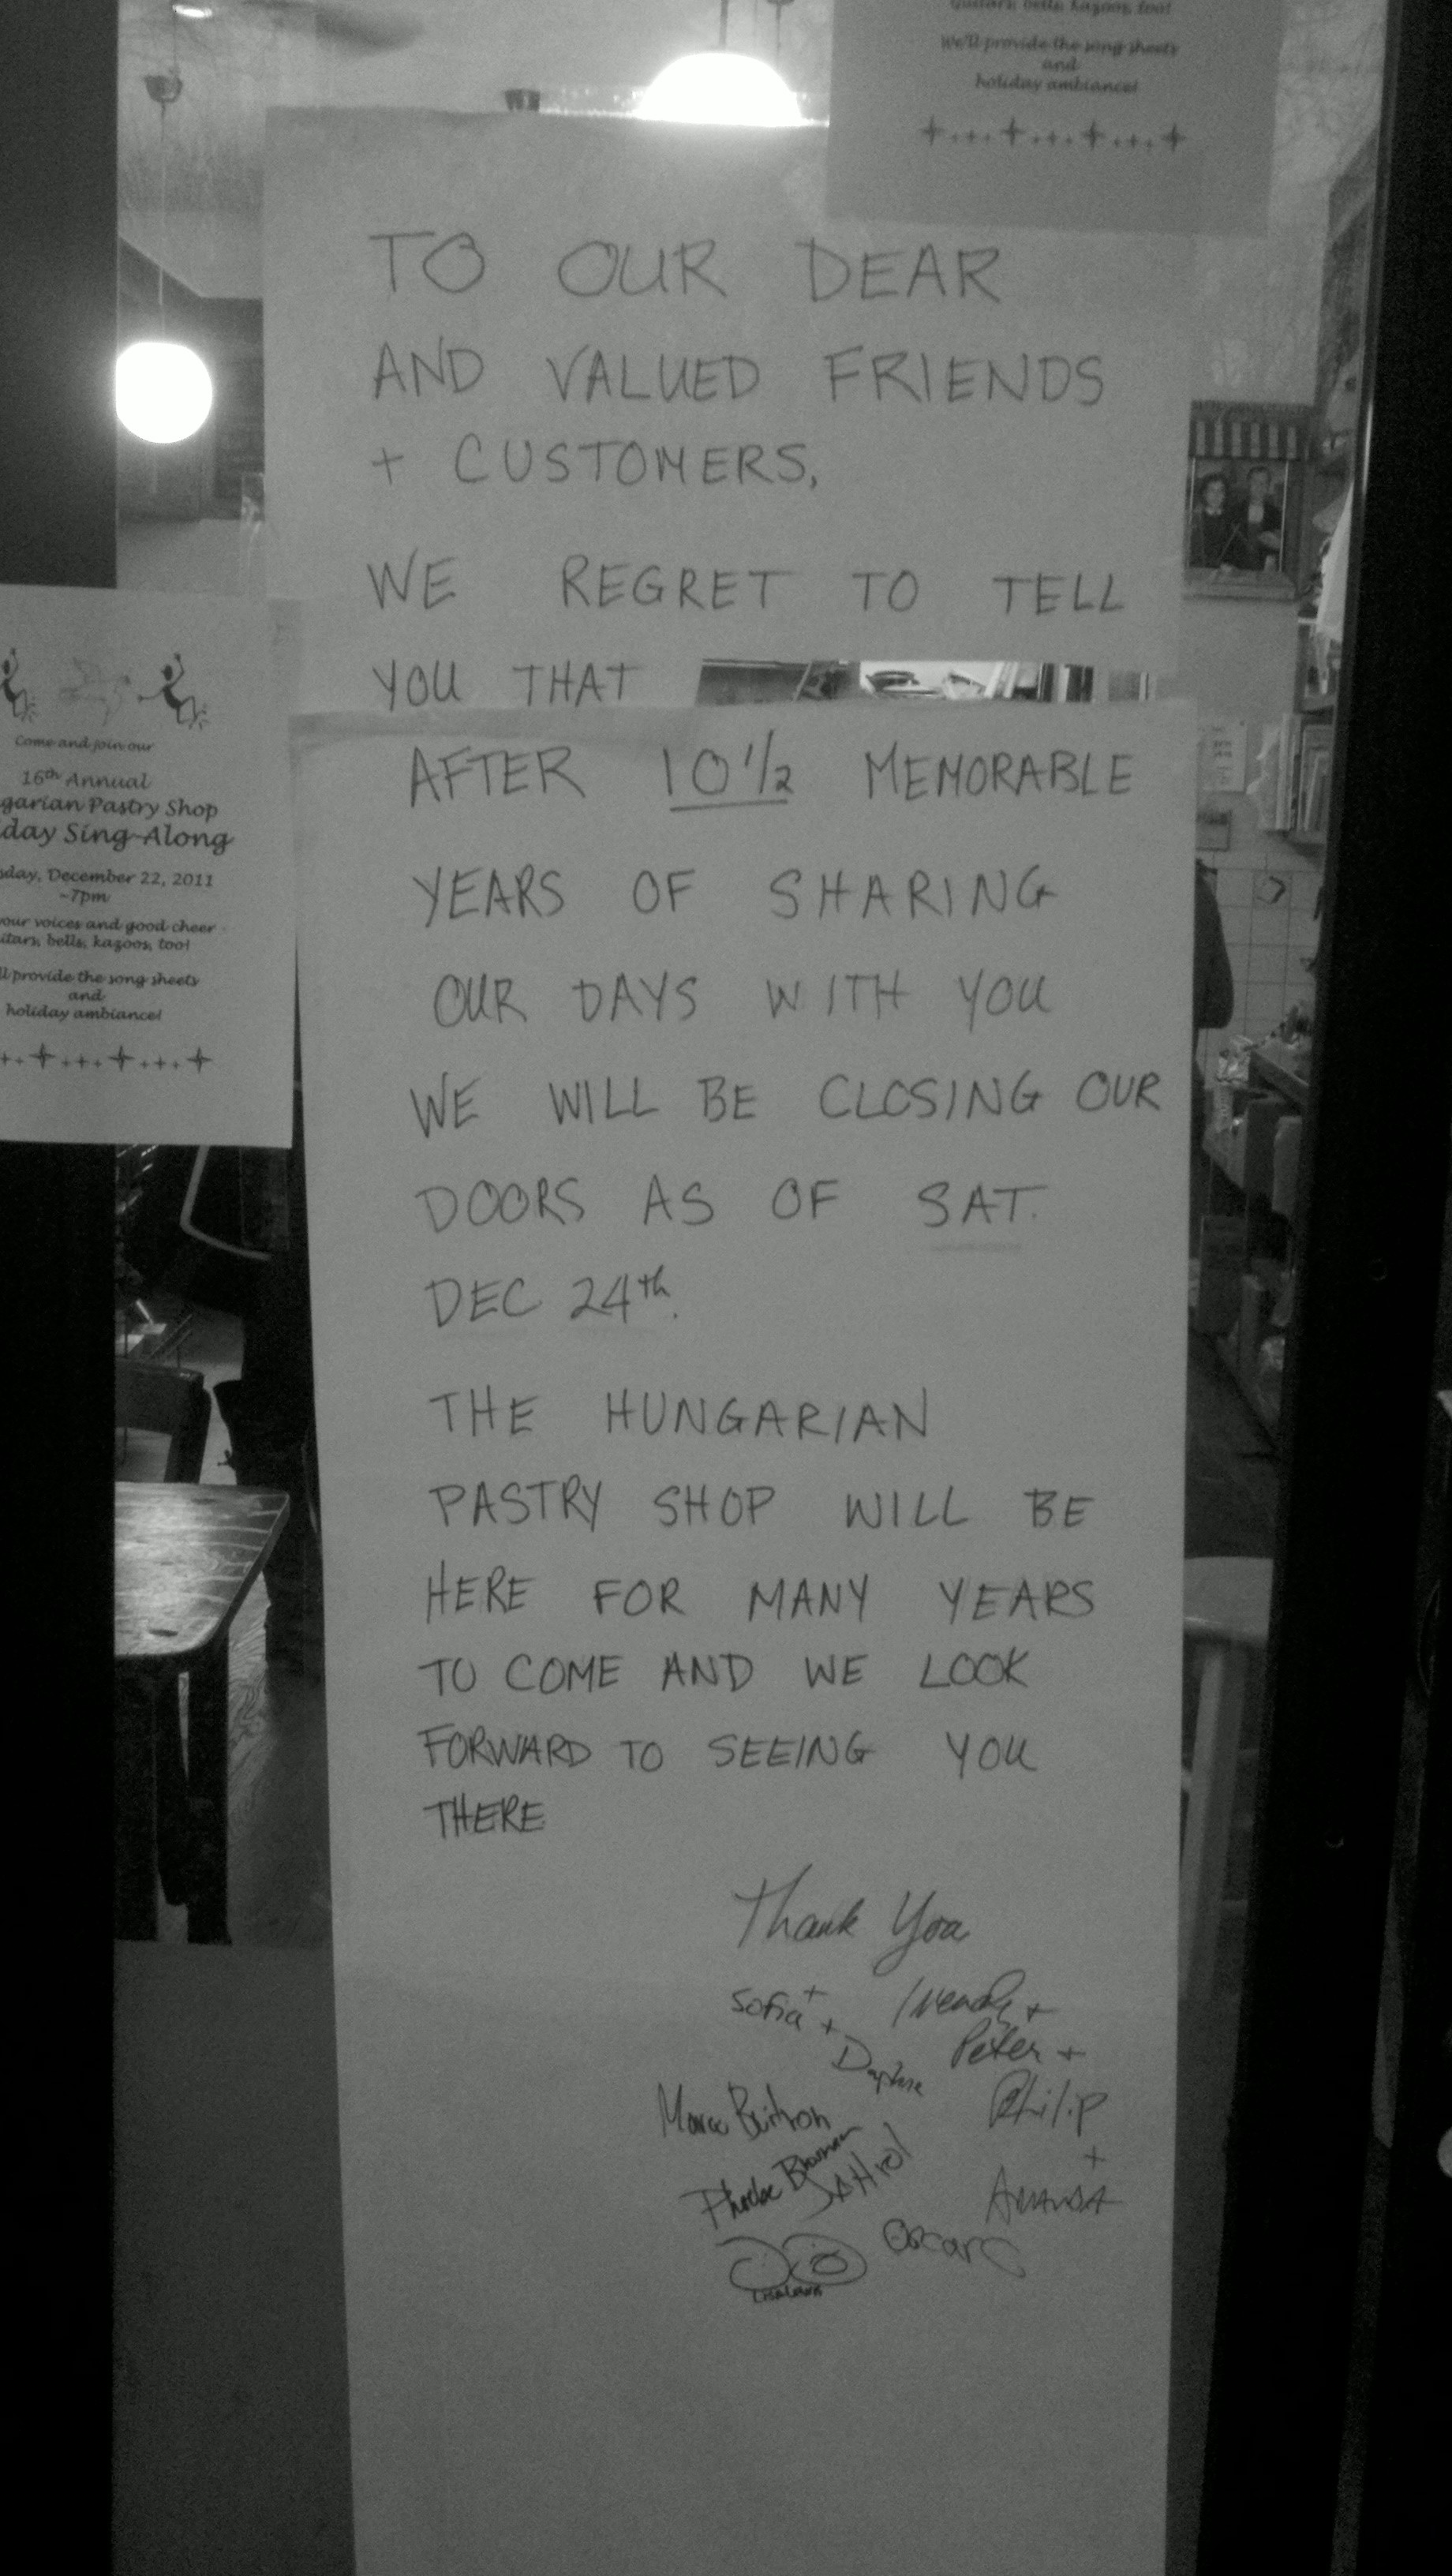 guitars, bells, kazoos, too!
We'll provide the song sheets
and
holiday ambiance!
TO OUR DEAR
AND VALUED FRIENDS
+ CUSTOMERS,
WE REGRET TO TELL
YOU THAT
AFTER 10 1/2 MEMORABLE
YEARS OF SHARING
OUR DAYS WITH YOU
WE WILL BE CLOSING OUR
DOORS AS OF SAT.
DEC 24th.
THE HUNGARIAN
PASTRY SHOP WILL BE
HERE FOR MANY YEARS
TO COME AND WE LOOK
FORWARD TO SEEING YOU
THERE
Thank You
Sofia + Wendy +
+ Daphne Peter +
Philip
Phoebe
+
AMANDA
Oscar
Come and join our
16th Annual
garian Pastry Shop
day Sing-Along
sday, December 22, 2011
~7pm
our voices and good cheer
itars, bells, kazoos, too!
ll provide the song sheets
and
holiday ambiance!